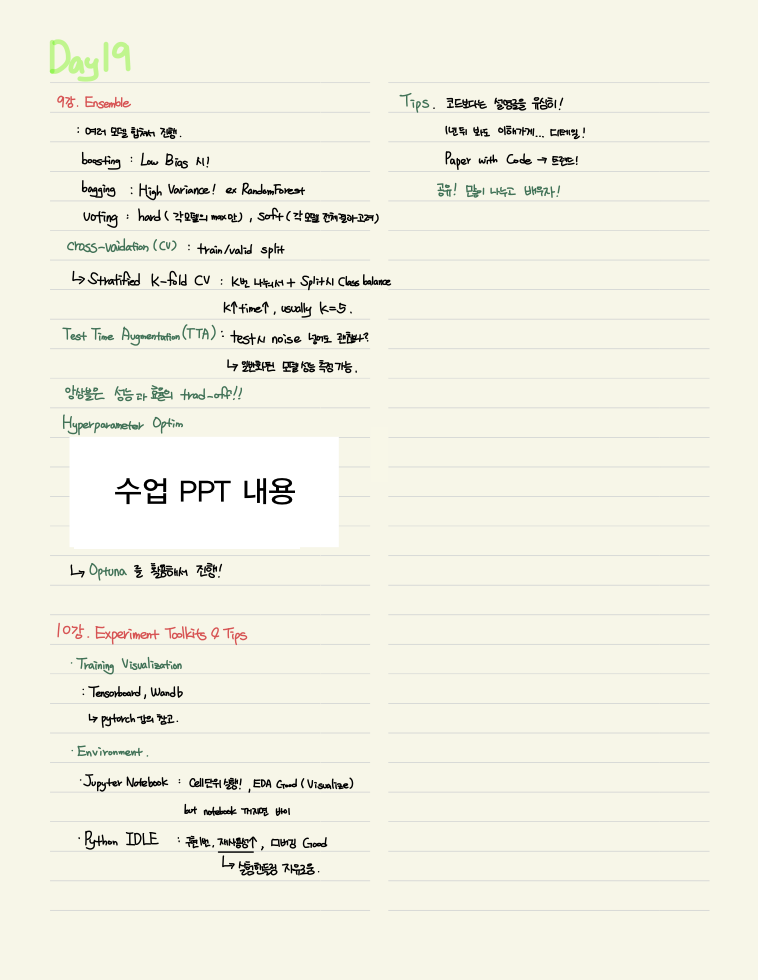 Day19
9강. Ensemble
: 여러 모델 합쳐서 진행.
boosting : Low Bias 시!
bagging : High Variance! ex RandomForest
Voting : hard( 각 모델의 max만) , Soft( 각 모델 전체 결과 고려)
Cross-vaidation (CV) : train/valid split
↳ Stratified K-fold CV : K번 나눠서 + Split시 Class balance
K↑ time↑, usually K=5.
Test Time Augmentation(TTA) : test시 noise 넣어도 괜찮나?
↳ 일반화된 모델 성능 측정 가능.
앙상블은 성능과 효율의 trad-off!!
Hyperparameter Optim
수업 PPT 내용
↳ Optuna 를 활용해서 진행!
10강. Experiment Toolkits & Tips
· Training Visualization
: Tensorboard, Wandb
↳ pytorch 강의 참고.
· Environment.
· Jupyter Notebook : Cell단위 실행!, EDA Good (Visualize)
but notebook 꺼지면 바이
· Python IDLE : 구현 한번, 재사용성↑, 디버깅 Good
↳ 실험 핸들링 자유로움.
Tips. 코드보다는 설명글을 유심히!
1년 뒤 봐도 이해가게... 디테일!
Paper with Code → 트렌드!
공유! 많이 나누고 배우자!